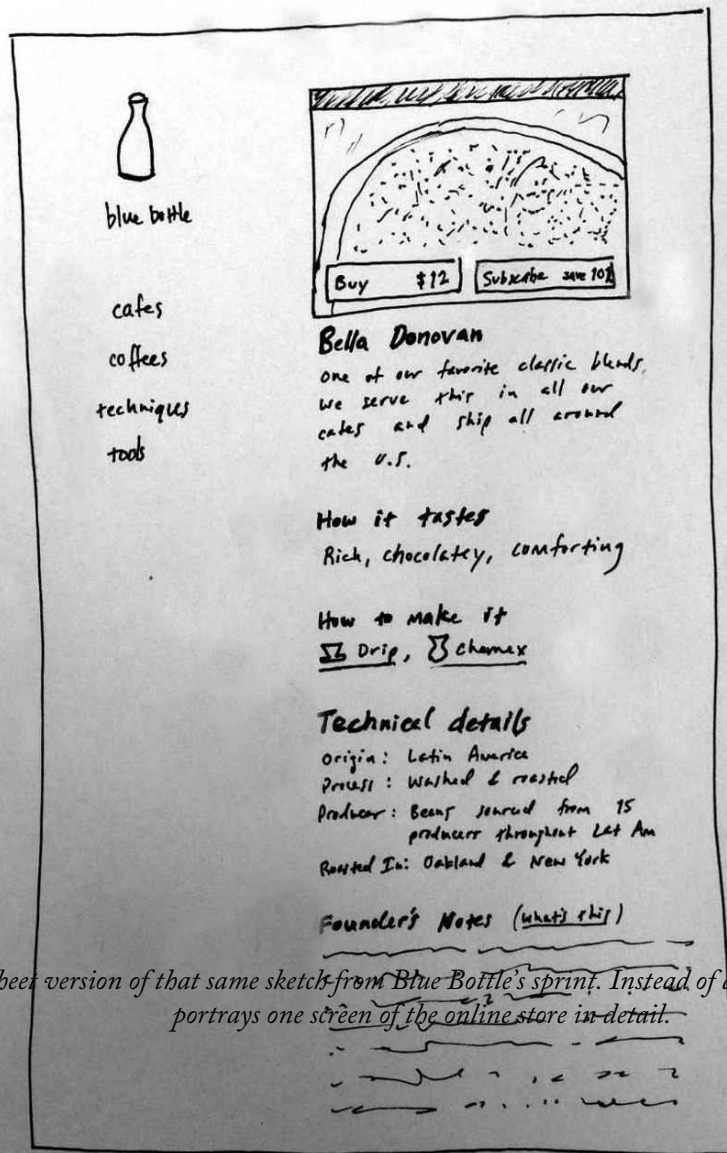 blue bottle
cafes
coffees
techniques
tools
Buy $12
Subscribe save 10%
Bella Donovan
one of our favorite classic blends.
we serve this in all our
cafes and ship all around
the U.S.
How it tastes
Rich, chocolatey, comforting
How to make it
Drip, Chemex
Technical details
Origin: Latin America
Process: Washed & roasted
Producer: Beans sourced from 15
producers throughout Lat Am
Roasted In: Oakland & New York
Founder's Notes (what's this)
heet version of that same sketch from Blue Bottle's sprint. Instead of
portrays one screen of the online store in detail.